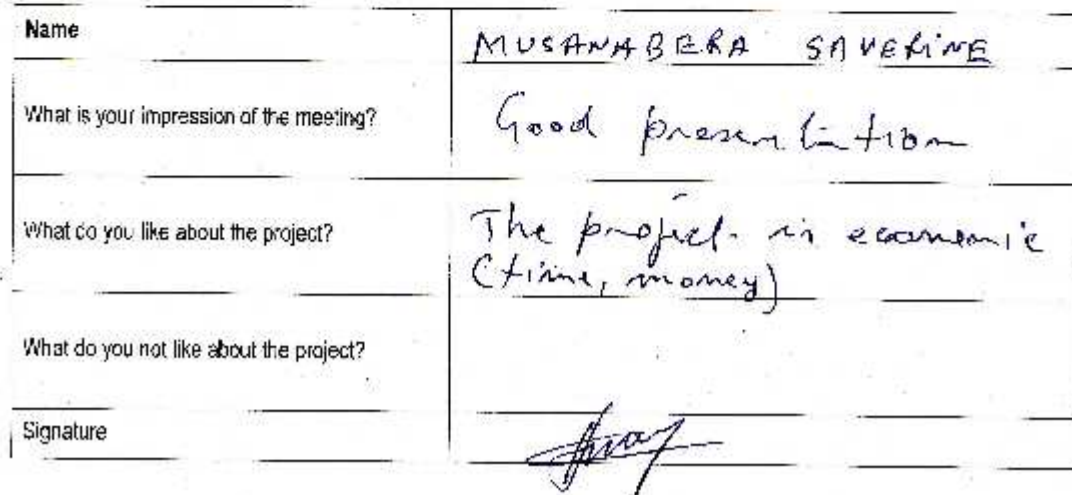 Name
MUSANABERA SAVERINE
What is your impression of the meeting?
Good presentation
What do you like about the project?
The project is economic
(time, money)
What do you not like about the project?
Signature